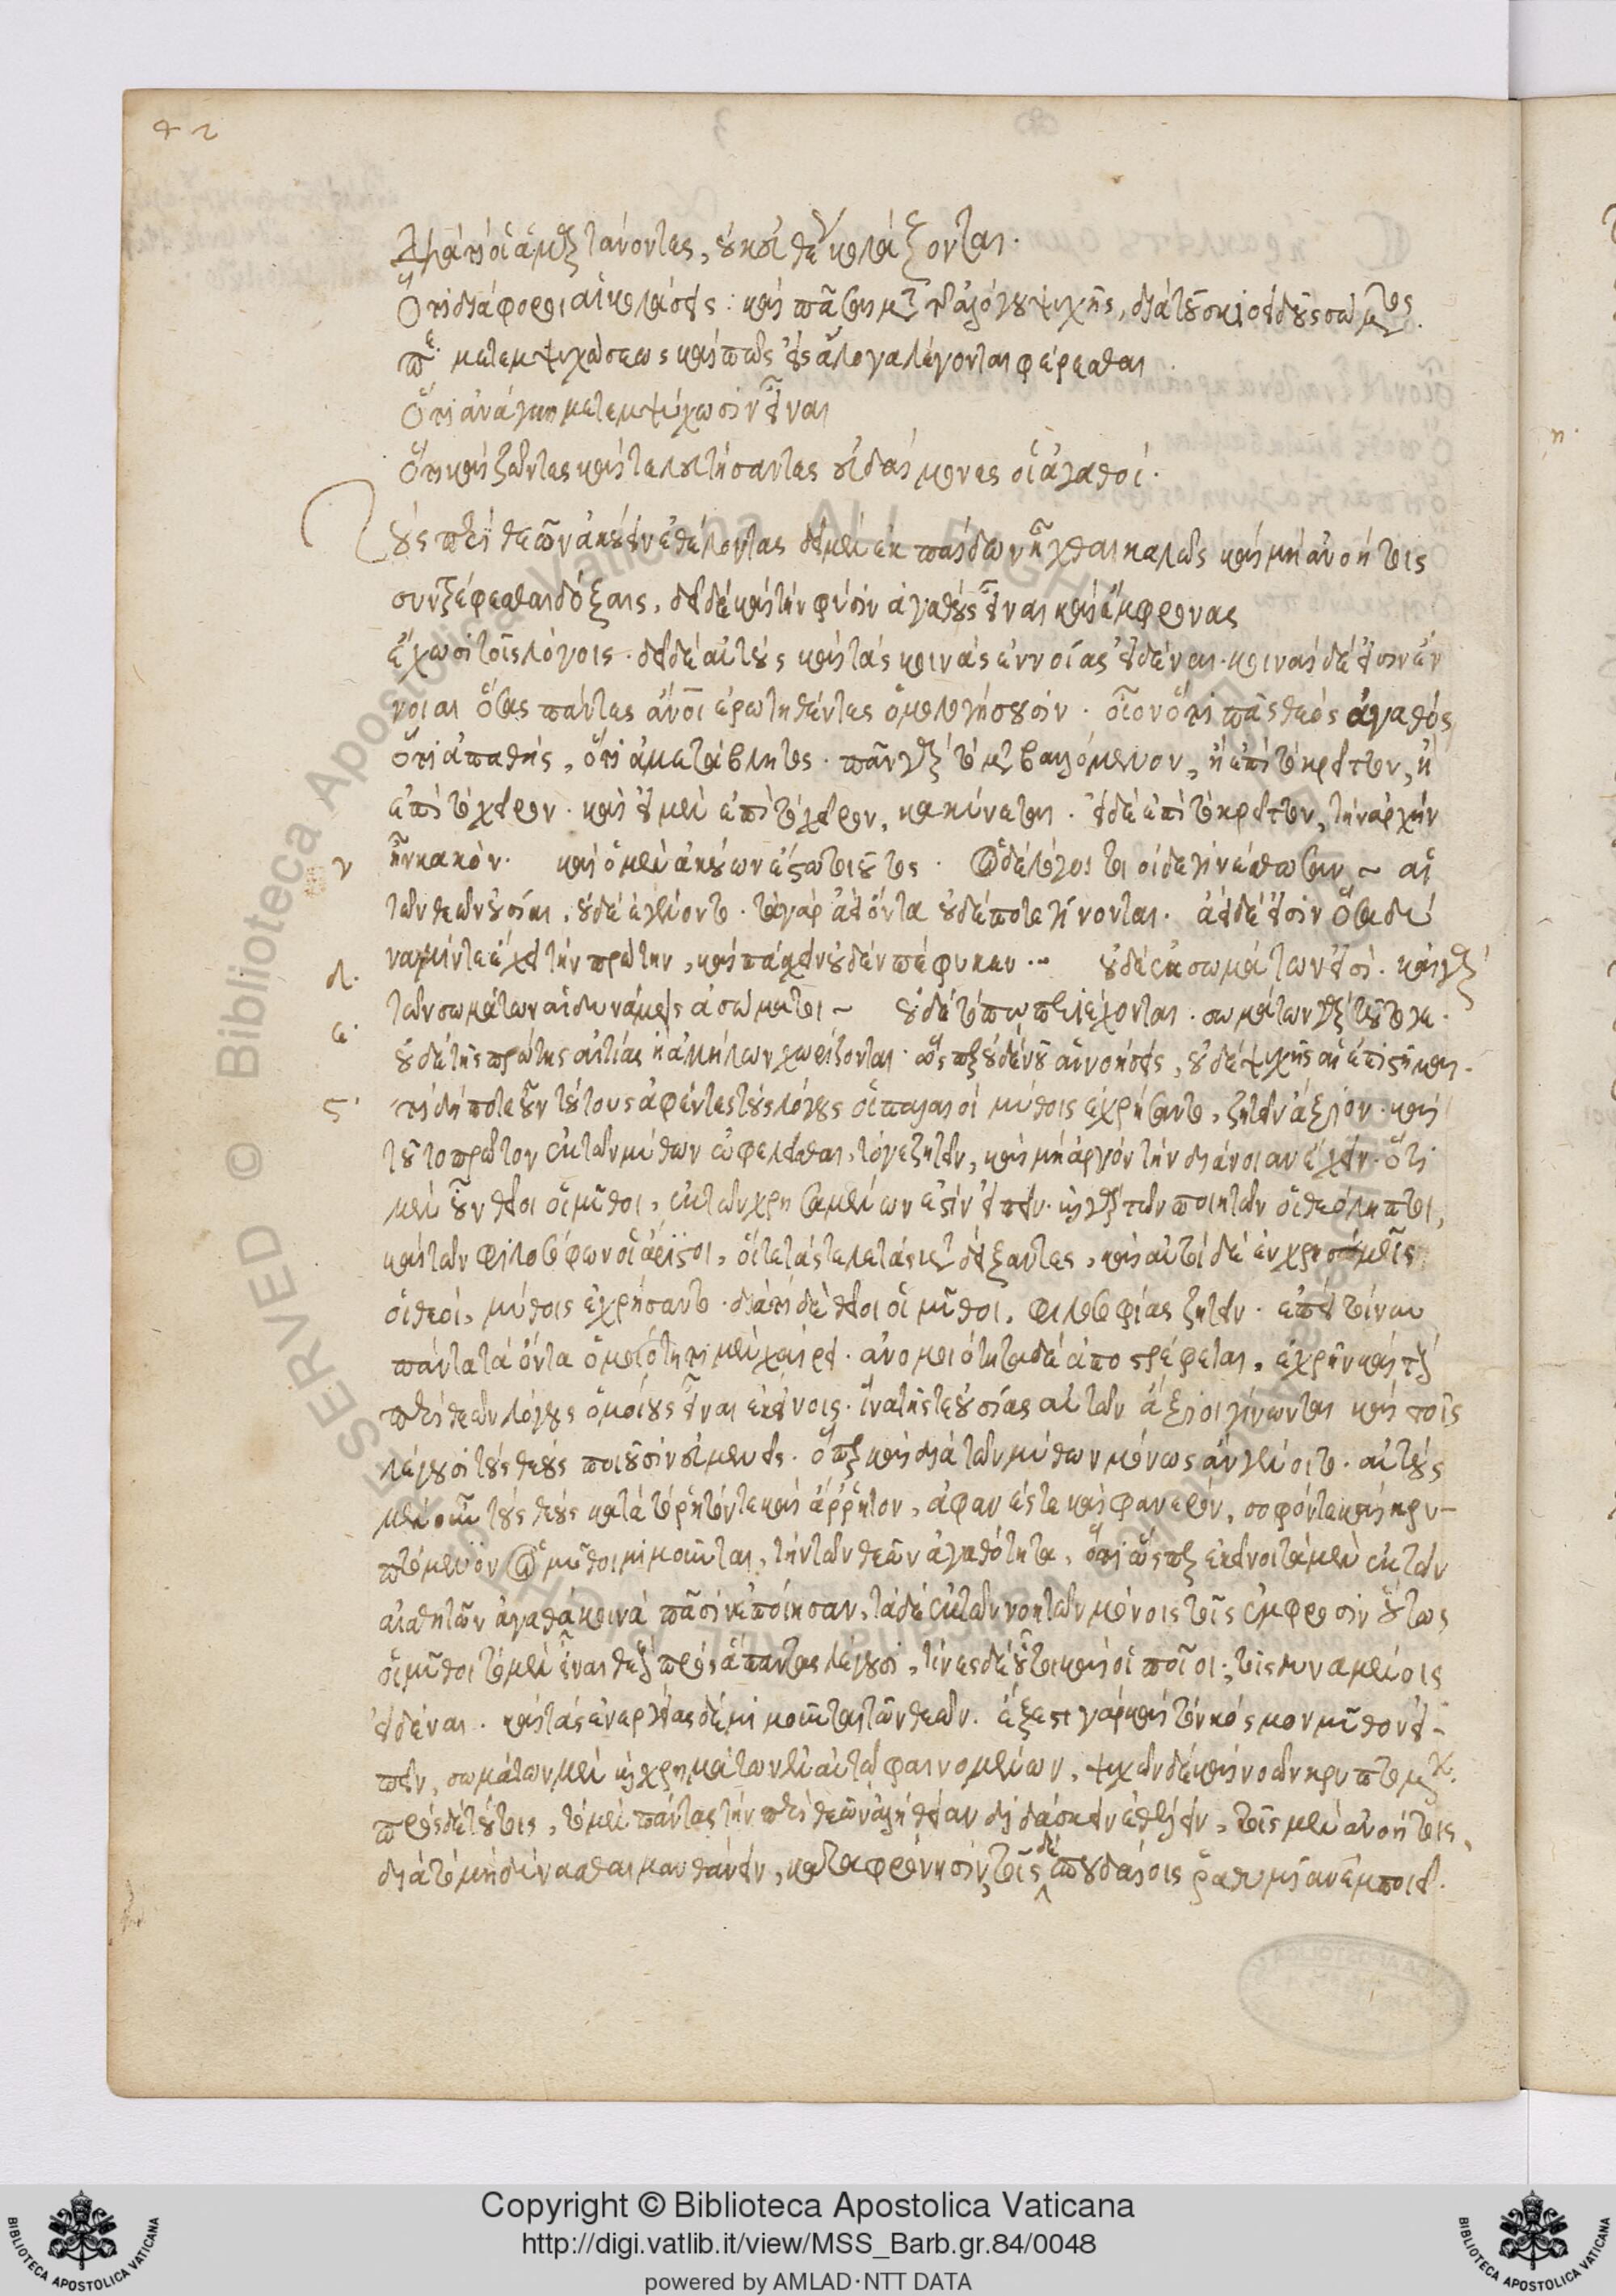 42
Διὰ τί οἱ ἁμαρτάνοντες, οὐκ εὐθὺ κολάζονται.
Ὅτι διάφοροι αἱ κολάσεις : καὶ πᾶσαι μετὰ τῆς ἀλόγου ψυχῆς, διὰ τοῦ σκιοειδοῦς σώματος.
περὶ μετεμψυχώσεως καὶ πῶς εἰς ἄλογα λέγονται φέρεσθαι
Ὅτι ἀνάγκη μετεμψύχωσιν εἶναι
Ὅτι καὶ ζῶντες καὶ τελευτήσαντες εὐδαίμονες οἱ ἀγαθοί.
Τοὺς περὶ θεῶν ἀκούειν ἐθέλοντας δεῖ μὲν ἐκ παίδων ἦχθαι καλῶς καὶ μὴ ἀνοήτοις
συντρέφεσθαι δόξαις, δεῖ δὲ καὶ τὴν φύσιν ἀγαθοὺς εἶναι καὶ ἔμφρονας
ἔχωσι τοῖς λόγοις. δεῖ δὲ αὐτοὺς καὶ τὰς κοινὰς ἐννοίας εἰδέναι. κοιναὶ δέ εἰσιν ἔν
νοιαι ὅσας πάντες ἄνοι ἐρωτηθέντες ὁμολογήσουσιν. οἷον ὅτι πᾶς θεὸς ἀγαθός
ὅτι ἀπαθής, ὅτι ἀμετάβλητος. πᾶν γὰρ τὸ μεταβαλλόμενον, ἢ ἐπὶ τὸ κρεῖττον, ἢ
ἐπὶ τὸ χεῖρον. καὶ εἰ μὲν ἐπὶ τὸ χεῖρον, κακύνεται. εἰ δὲ ἐπὶ τὸ κρεῖττον, τὴν ἀρχὴν
γ ἦν κακόν. καὶ ὁ μὲν ἀκούων ἔστω τοιοῦτος. οἱ δὲ λόγοι τοιοίδε γινέσθωσαν ~ αἱ
τῶν θεῶν οὐσίαι, οὐδὲ ἐγένοντο. τὰ γὰρ ἀεὶ ὄντα οὐδέποτε γίνονται. ἀεὶ δέ εἰσιν ὅσα δύ
δ. ναμίν τε ἔχει τὴν πρώτην, καὶ πάσχειν οὐδὲν πέφυκεν ... οὐδὲ ἐκ σωμάτων εἰσί. καὶ γὰρ
ε. τῶν σωμάτων αἱ δυνάμεις ἀσώματοι ~ οὐδὲ τόπῳ περιέχονται. σωμάτων γὰρ τοῦτό γε.
οὐδὲ τῆς πρώτης αἰτίας ἢ ἀλλήλων χωρίζονται. ὥσπερ οὐδὲ νοῦ αἱ νοήσεις, οὐδὲ ψυχῆς αἱ ἐπιστῆμαι.
ς. τί δήποτε οὖν τούτους ἀφέντες τοὺς λόγους οἱ παλαιοὶ μύθοις ἐχρήσαντο, ζητεῖν ἄξιον. καὶ
τοῦτο πρῶτον ἐκ τῶν μύθων ὠφελεῖσθαι, τό γε ζητεῖν, καὶ μὴ ἀργὸν τὴν διάνοιαν ἔχειν. ὅτι
μὲν οὖν θεῖοι οἱ μῦθοι, ἐκ τῶν χρησαμένων ἐστὶν εἰπεῖν. καὶ γὰρ τῶν ποιητῶν οἱ θεόληπτοι,
καὶ τῶν φιλοσόφων οἱ ἄριστοι, οἵ τε τὰς τελετὰς καταδείξαντες, καὶ αὐτοὶ δὲ ἐν χρησμοῖς
οἱ θεοί, μύθοις ἐχρήσαντο. διὰ τί δὲ θεῖοι οἱ μῦθοι, φιλοσοφίας ζητεῖν. ἐπεὶ τοίνυν
πάντα τὰ ὄντα ὁμοιότητι μὲν χαίρει. ἀνομοιότητα δὲ ἀποστρέφεται, ἐχρῆν καὶ τοὺς
περὶ θεῶν λόγους ὁμοίους εἶναι ἐκείνοις. ἵνα τῆς τε οὐσίας αὐτῶν ἄξιοι γίνωνται καὶ τοῖς
λέγουσι τοὺς θεοὺς ποιοῦσιν εὐμενεῖς. ὅπερ καὶ διὰ τῶν μύθων μόνως ἂν γένοιτο. αὐτοὺς
μὲν οὖν τοὺς θεοὺς κατὰ τὸ ῥητόν τε καὶ ἄρρητον, ἀφανές τε καὶ φανερόν, σοφόν τε καὶ κρυ-
πτόμενον οἱ μῦθοι μιμοῦνται, τὴν τῶν θεῶν ἀγαθότητα, ὅτι ὥσπερ ἐκεῖνοι τὰ μὲν ἐκ τῶν
αἰσθητῶν ἀγαθὰ κοινὰ πᾶσιν ἐποίησαν, τὰ δὲ ἐκ τῶν νοητῶν μόνοις τοῖς ἔμφροσιν οὕτως
οἱ μῦθοι τὸ μὲν εἶναι θεοὺς πρὸς ἅπαντας λέγουσι, τίνες δὲ οὗτοι καὶ οἱ ποῖοι, τοῖς δυναμένοις
εἰδέναι. καὶ τὰς ἐνεργείας δὲ μιμοῦνται τῶν θεῶν. ἔξεστι γὰρ καὶ τὸν κόσμον μῦθον εἰ-
πεῖν, σωμάτων μὲν καὶ χρημάτων ἐν αὐτῷ φαινομένων, ψυχῶν δὲ καὶ νοῶν κρυπτομένων.
πρὸς δὲ τούτοις, τὸ μὲν πάντας τὴν περὶ θεῶν ἀλήθειαν διδάσκειν ἐθέλειν, τοῖς μὲν ἀνοήτοις,
διὰ τὸ μὴ δύνασθαι μανθάνειν, καταφρόνησιν, τοῖς δὲ σπουδαίοις ῥᾳθυμίαν ἐμποιεῖ.
BIBLIOTECA APOSTOLICA VATICANA
Copyright © Biblioteca Apostolica Vaticana
http://digi.vatlib.it/view/MSS_Barb.gr.84/0048
powered by AMLAD·NTT DATA